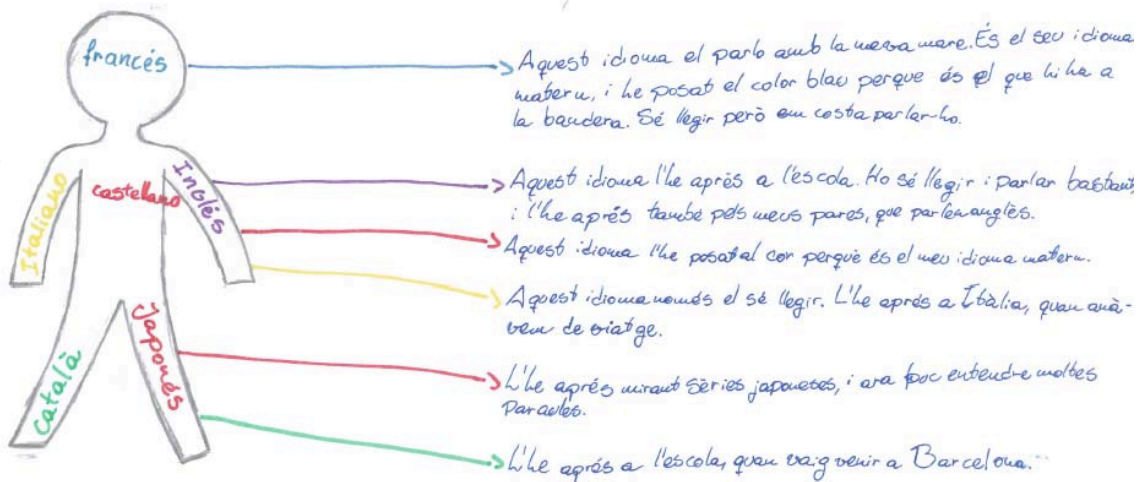 francés
Aquest idioma el parlo amb la meva mare. És el seu idioma
matern, i he posat el color blau perque és el que hi ha a
la bandera. Sé llegir però em costa parlar-ho.
Italiano
castellano
Inglés
Aquest idioma l'he après a l'escola. Ho sé llegir i parlar bastant,
i l'he aprés també pels meus pares, que parlen anglès.
Aquest idioma l'he posat al cor perquè és el meu idioma matern.
Aquest idioma només el sé llegir. L'he aprés a Itàlia, quan anà-
vem de viatge.
català
Japonés
L'he aprés mirant sèries japoneses, i ara puc entendre moltes
Paraules.
L'he aprés a l'escola, quan vaig venir a Barcelona.